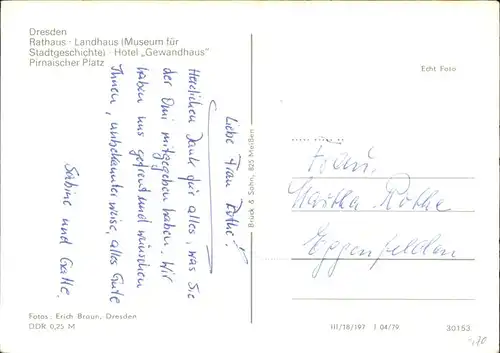 Dresden
Rathaus · Landhaus (Museum für
Stadtgeschichte) · Hotel „Gewandhaus"
Pirnaischer Platz
Liebe Frau Rothe!
Herzlichen Dank für alles, was Sie
der Omi mitgegeben haben. Wir
haben uns gefreut und wünschen
Ihnen, unbekannterweise, alles Gute
Sabine und Gatte.
Fotos: Erich Braun, Dresden
DDR 0,25 M
Brück & Sohn, 825 Meißen
Echt Foto
Frau
Martha Rothe
Eggenfelden
III/18/197 J 04/79
30153